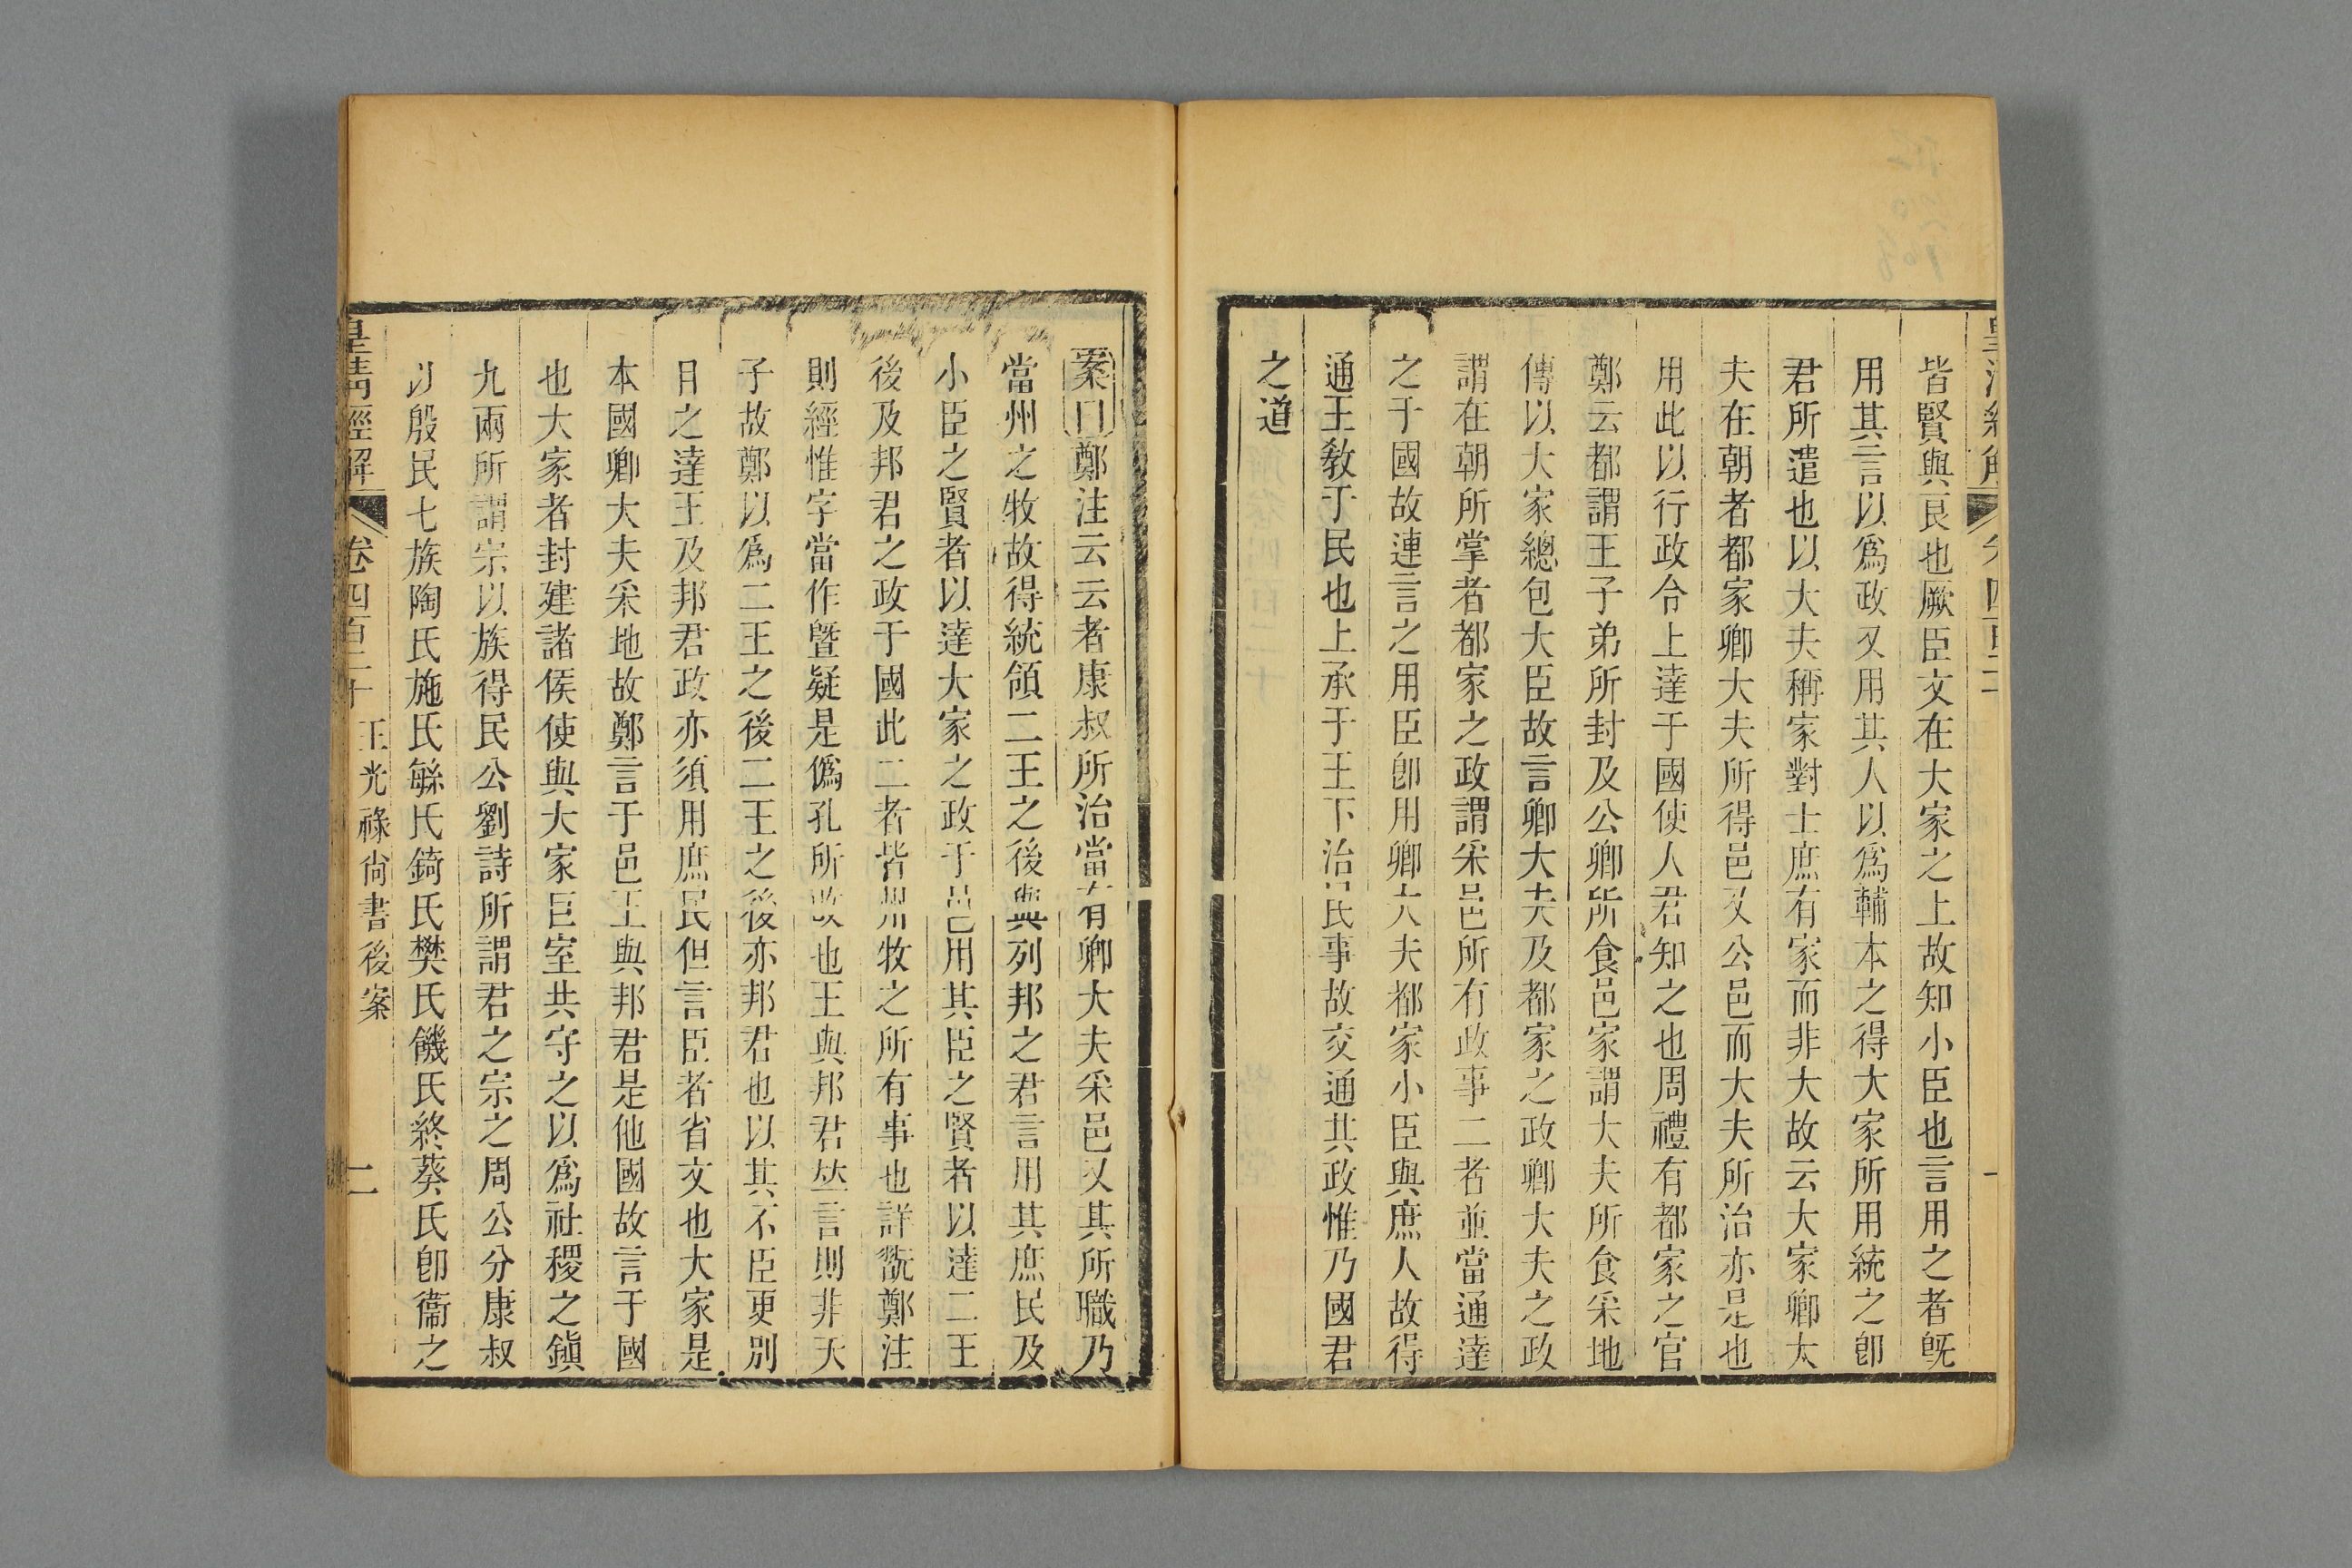 皆賢與良也厥臣文在大家之上故知小臣也言用之者旣
用其言以爲政又用其人以爲輔本之得大家所用統之卽
君所遣也以大夫稱家對士庶有家而非大故云大家卿大
夫在朝者都家卿大夫所得邑又公邑而大夫所治亦是也
用此以行政合上達于國使人君知之也周禮有都家之官
鄭云都謂王子弟所封及公卿所食邑家謂大夫所食采地
傳以大家總包大臣故言卿大夫及都家之政卿大夫之政
謂在朝所掌者都家之政謂采邑所有政事二者並當通達
之于國故連言之用臣卽用卿大夫都家小臣與庶人故得
通王敎于民也上承于王下治民事故交通其政惟乃國君
之道
案曰鄭注云云者康叔所治當有卿大夫采邑又其所職乃
當州之牧故得統領二王之後與列邦之君言用其庶民及
小臣之賢者以達大家之政于邑用其臣之賢者以達二王
後及邦君之政于國此二者皆州牧之所有事也詳翫鄭注
則經惟字當作曁疑是僞孔所改也王與邦君竝言則非天
子故鄭以爲二王之後二王之後亦邦君也以其不臣更別
目之達王及邦君政亦須用庶民但言臣者省文也大家是
本國卿大夫采地故鄭言于邑王與邦君是他國故言于國
也大家者封建諸侯使與大家巨室共守之以爲社稷之鎭
九兩所謂宗以族得民公劉詩所謂君之宗之周公分康叔
以殷民七族陶氏施氏緐氏錡氏樊氏饑氏終葵氏卽衞之
皇淸經解 卷四百二十 王光祿尙書後案 二